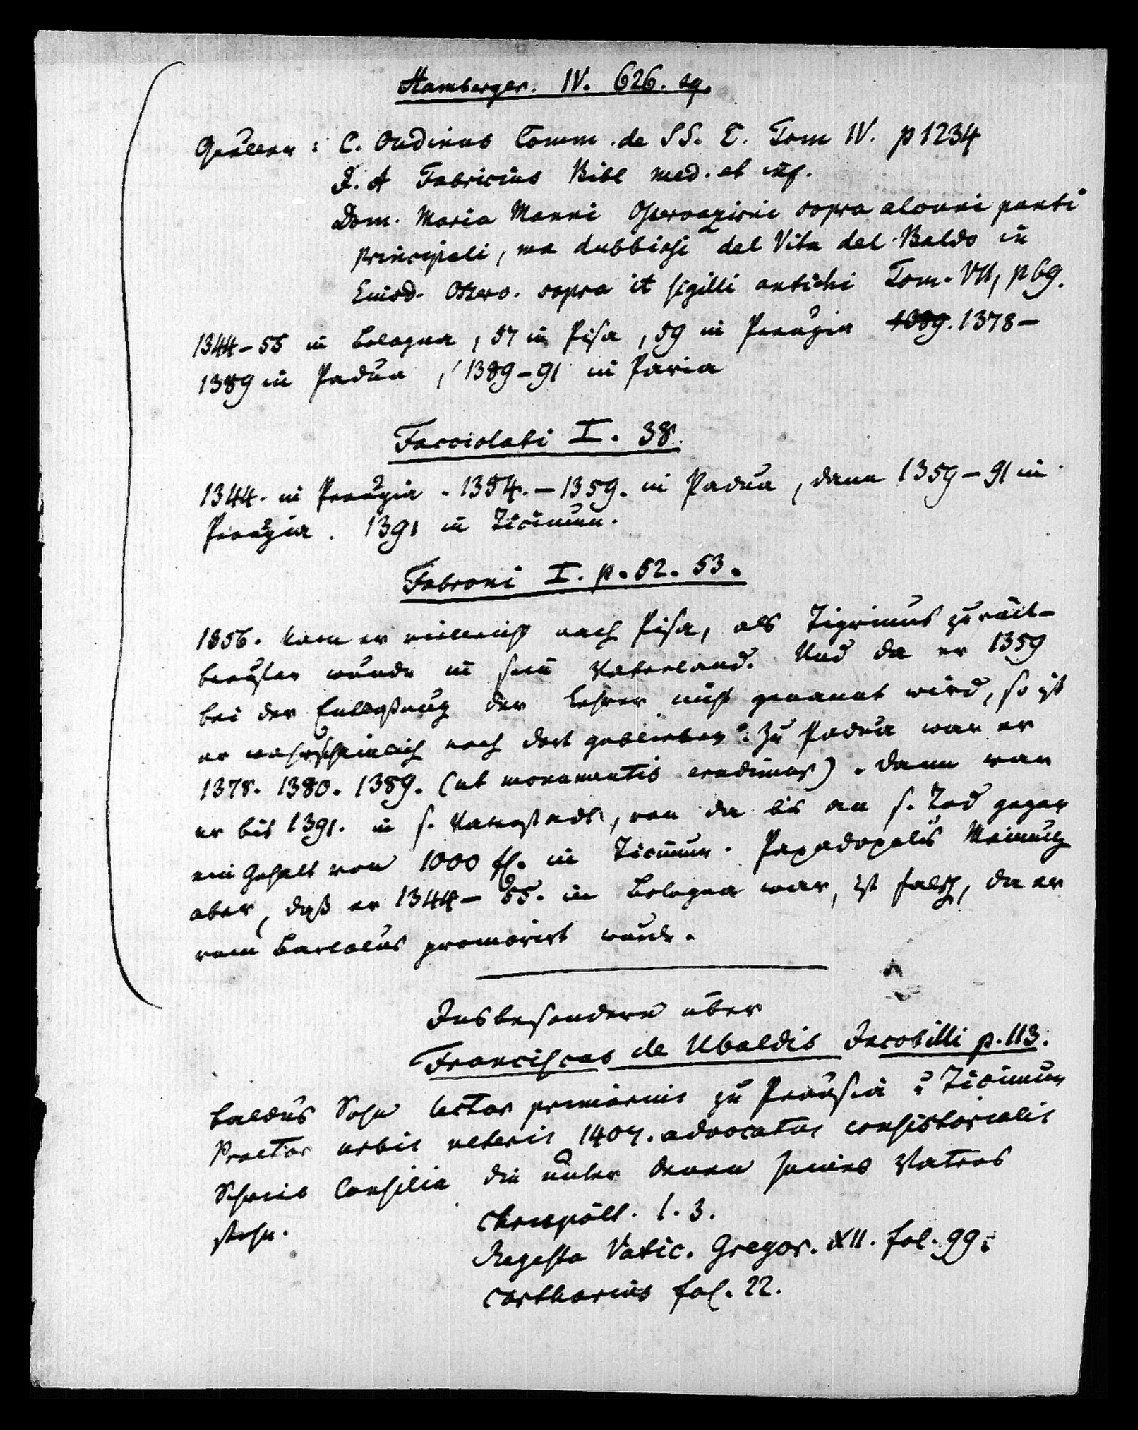 Hamberger. IV. 626. sq.
Quellen: C. Oudinus Comm. de SS. E. Tom IV. p 1234
J. A Fabricius Bibl med. et inf.
Dom. Maria Manni Osservazioni sopra alcuni punti
principali, ma dubbiosi del Vita del Baldo in
Eiusd. Osserv. sopra it sigilli antichi Tom. VII, p 69.
1344–55 in Bologna, 57 in Pisa, 59 in Perugia 1389. 1378–
1389 in Padua, 1389–91 in Pavia
Facciolati I. 38.
1344. in Perugia. 1354.–1359. in Padua, dann 1359–91 in
Perugia. 1391 in Ticinum.
Fabroni I. p. 52. 53.
1356. kam er vielleicht nach Pisa, als Tigrinus zurück-
berufen wurde in sein Vaterland. Und da er 1359
bei der Entlaßung der Lehrer nicht genannt wird, so ist
er wahrscheinlich noch dort geblieben. Zu Padua war er
1378. 1380. 1389. (ut monumentis credimus). Dann war
er bis 1391. in s. Vaterstadt, von da bis an s. Tod gegen
ein Gehalt von 1000 fl. in Ticinum. Papadopolis Meinung
aber, daß er 1344–55. in Bologna war, ist falsch, da er
vom Bartolus promovirt wurde.
Insbesondere über
Franciscus de Ubaldis Jacobilli p. 113.
Baldus Sohn lector primarius zu Perusia u Ticinum
Praetor urbis veteris 1407. advocatus consistorialis
Consilia die unter denen seines Vaters
stehn.
l. 3.
Regesta Vatic. Gregor. XII. fol. 99.
Cartharius fol. 22.